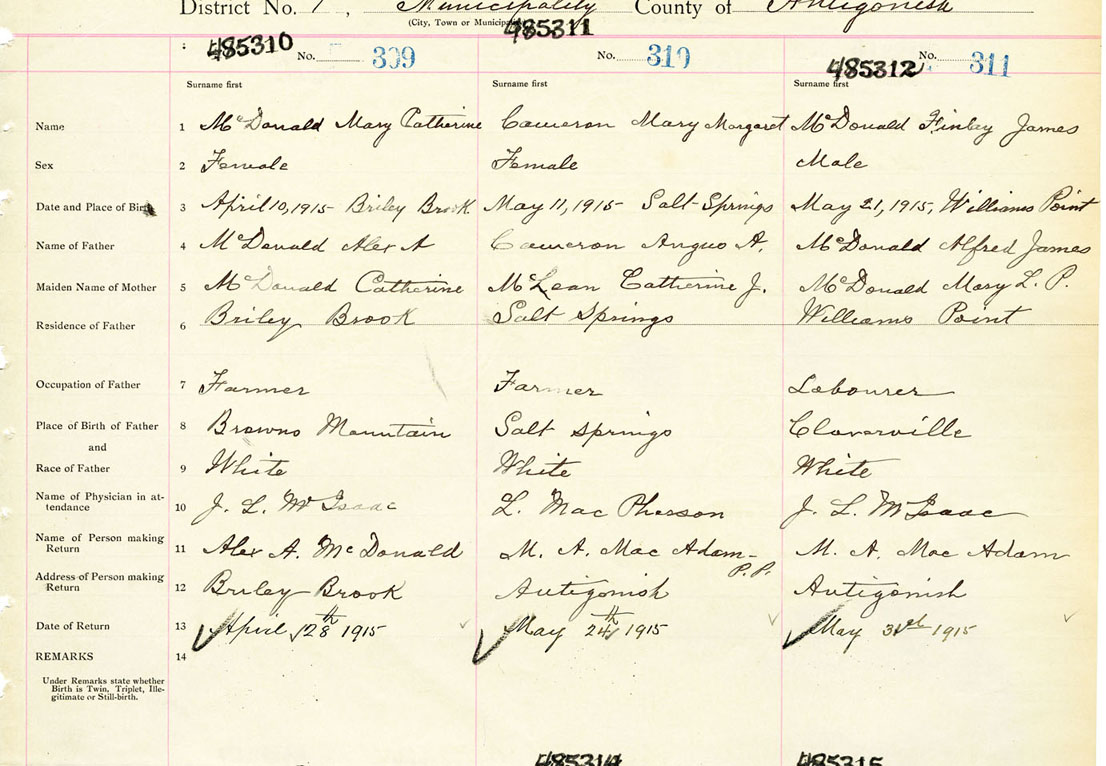 District No. 1, Municipality County of Antigonish
(City, Town or Municipality)
485310 No. 309 485311 No. 310 485312 No. 311
Surname first Surname first Surname first
Name 1 McDonald Mary Catherine Cameron Mary Margaret McDonald Finlay James
Sex 2 Female Female Male
Date and Place of Birth 3 April 10, 1915 Briley Brook May 11, 1915 Salt Springs May 21, 1915, Williams Point
Name of Father 4 McDonald Alex A Cameron Angus A. McDonald Alfred James
Maiden Name of Mother 5 McDonald Catherine McLean Catherine J. McDonald Mary L. P.
Residence of Father 6 Briley Brook Salt Springs Williams Point
Occupation of Father 7 Farmer Farmer Labourer
Place of Birth of Father 8 Browns Mountain Salt Springs Cloverville
and
Race of Father 9 White White White
Name of Physician in at-
tendance 10 J. L. McIsaac L. MacPherson J. L. McIsaac
Name of Person making
Return 11 Alex A. McDonald M. A. MacAdam - P.P. M. A. MacAdam
Address of Person making
Return 12 Briley Brook Antigonish Antigonish
Date of Return 13 April 28th 1915 May 24th 1915 May 31st 1915
REMARKS 14
Under Remarks state whether
Birth is Twin, Triplet, Ille-
gitimate or Still-birth.
485314 485315